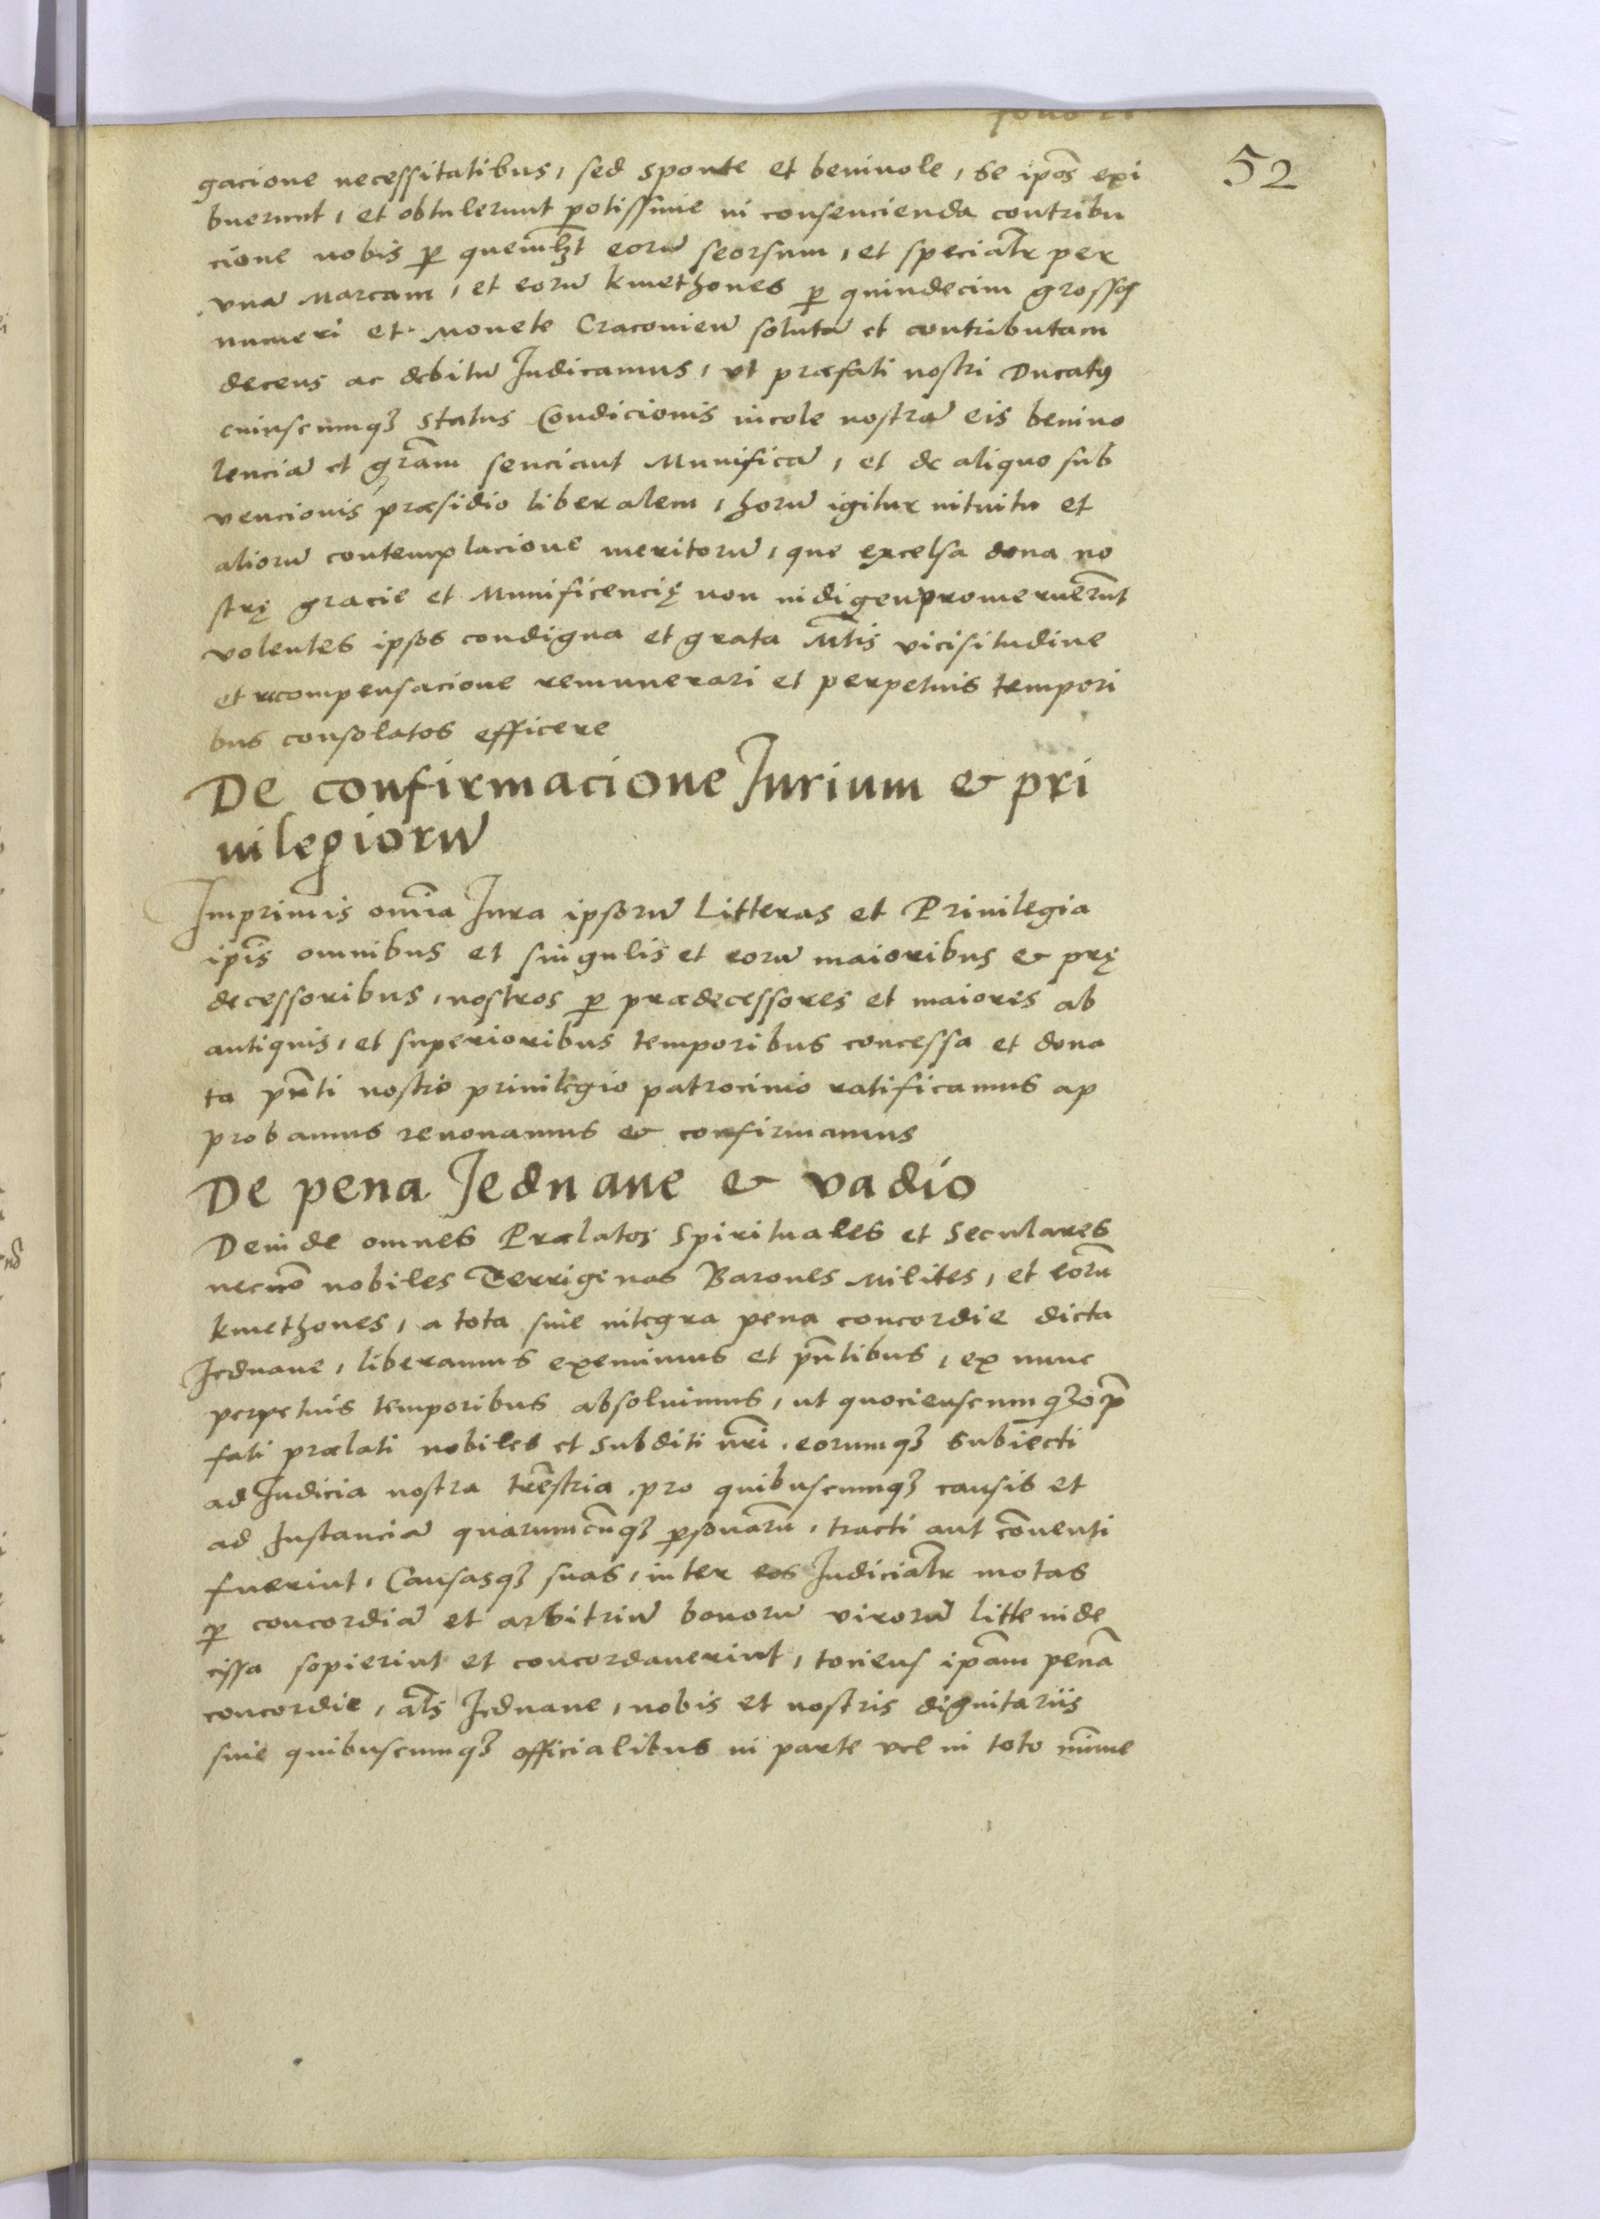 52
gacione necessitatibus, sed sponte et beniuole, se ip̄os exi
buerunt, et obtulerunt potissime in consencienda contribu
cione nobis p̱ quemlꝫt eorū seorsum, et speciatr̄ per
vnā Marcam, et eorū kmethones p̱ quindecim grossos
numeri et Monete Cracovien̄ solutā et contributam
decens ac debitū Iudicamus, vt præfati nostri Ducatus
cuiuscumqꝫ status Condicionis incole nostrā eis beniuo
lenciā et gr̄am senciant Munificā, et de aliquo sub
vencionis præsidio liberalem, horū igitur intuitu et
aliorū contemplacione meritorū, que excelsa dona no
strę gracie et Munificencię non indigen promeruer̄unt
volentes ipsos condigna et grata Mt̄is vicisitudine
et recompensacione remunerari et perpetuis tempori
bus consolatos efficere
De confirmacione Iurium & pri
uilegiorū
Imprimis om̄ia Iura ipsorū Litteras et Priuilegia
ip̄is omnibus et singulis et eorū maioribus & prę
decessoribus, nostros p̱ prædecessores et maiores ab
antiquis, et superioribus temporibus concessa et dona
ta pn̄ti nostro priuilegio patrocinio ratificamus ap
probamus renouamus & confirmamus
De pena Jednane & vadio
Deinde omnes Prælatos Spirituales et Seculares
necnō nobiles Terrigenas Barones Milites, et eorū
kmethones, a tota siue integra pena concordie dicta
Jednane, liberamus eximimus et pn̄tibus, ex nunc
perpetuis temporibus absoluimus, ut quocienscumqꝫ p̄
fati prælati nobiles et subditi nr̄i, eorumqꝫ subiecti
ad Iudicia nostra tr̄estria, pro quibuscumqꝫ causis et
ad Instanciā quarumcūqꝫ p̱sonarū, tracti aut cōuenti
fuerint, Causasqꝫ suas, inter eos Iudiciatr̄ motas
p̱ concordiā et arbitriū bonorū virorū litte inde
cissa sopierint et concordauerint, tociens ip̄am penā
concordie, at̄s Jednane, nobis et nostris dignitariis
siue quibuscumqꝫ officialibus in parte vel in toto mīme